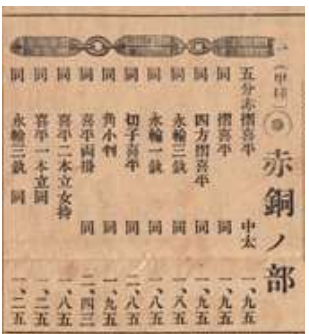 (甲印)
赤銅ノ部
五分赤摺喜平 中太 一、九五
同 摺喜平 同 一、九五
同 四方摺喜平 同 一、九五
同 永輪三鈥 同 一、八五
同 永輪一鈥 同 一、八五
同 切子喜平 同 二、八五
同 角小判 同 一、九五
同 喜平両掛 同 二、四三
同 喜平二本立女持 一、八五
同 喜平一本立同 一、二五
同 永輪三鈥 同 一、二五